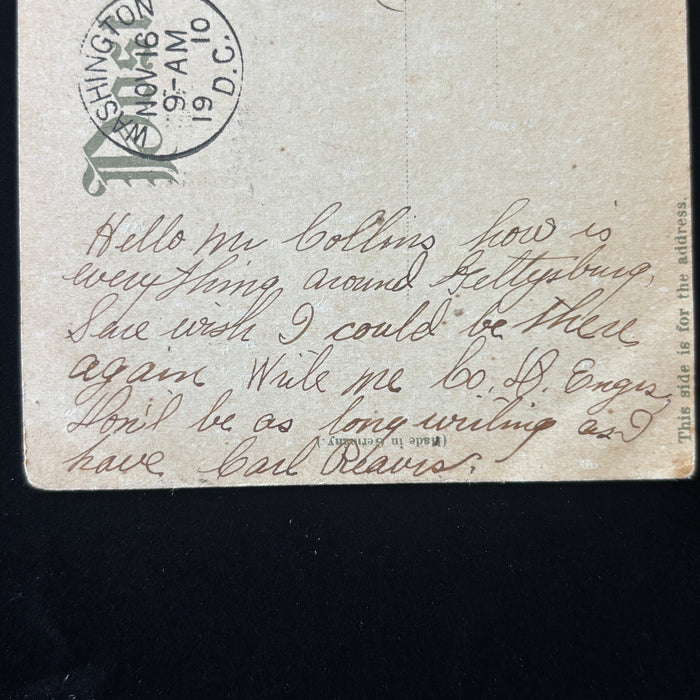 WASHINGTON D.C.
NOV 16
9-AM
1910
Post
Hello Mr Collins how is
everything around Gettysburg,
Sure wish I could be there
again Write me Co. D. Engrs.
Don't be as long writing as I
have Carl Reavis.
(Made in Germany.)
This side is for the address.